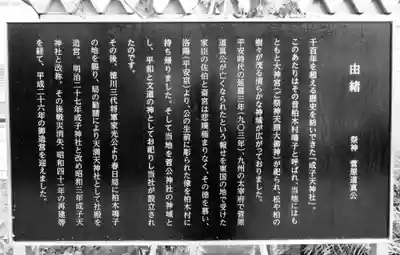 由緒
祭神　菅原道真公
千百年を超える歴史を紡いできた「成子天神社」。
このあたりはその昔柏木村鳴子と呼ばれ、当地にはも
ともと大神宮（ご祭神天照大御神）が祀られ、松や柏の
樹々が茂る清らかな神域が広がっておりました。
平安時代の延喜三年（九〇三年）、九州の太宰府で菅原
道真公が亡くなられたという報せを東国の地で受けた
家臣の佐伯と斎宮は悲嘆極まりなく、その徳を慕い、
洛陽（平安京）より、公の生前に彫られた像を柏木村に
持ち帰りました。そして当地を菅公神社の神域と
し、平和と文道の神としてお祀りし当社が設立され
たのです。
その後、徳川三代将軍家光公より春日局に柏木鳴子
の地を賜り、局の勧請により天満天神社として社殿を
造営。明治二十七年成子神社と改め昭和三年成子天
神社と改称。その後戦災消失、昭和四十一年の再建等
を経て、平成二十六年の御造営を迎えました。